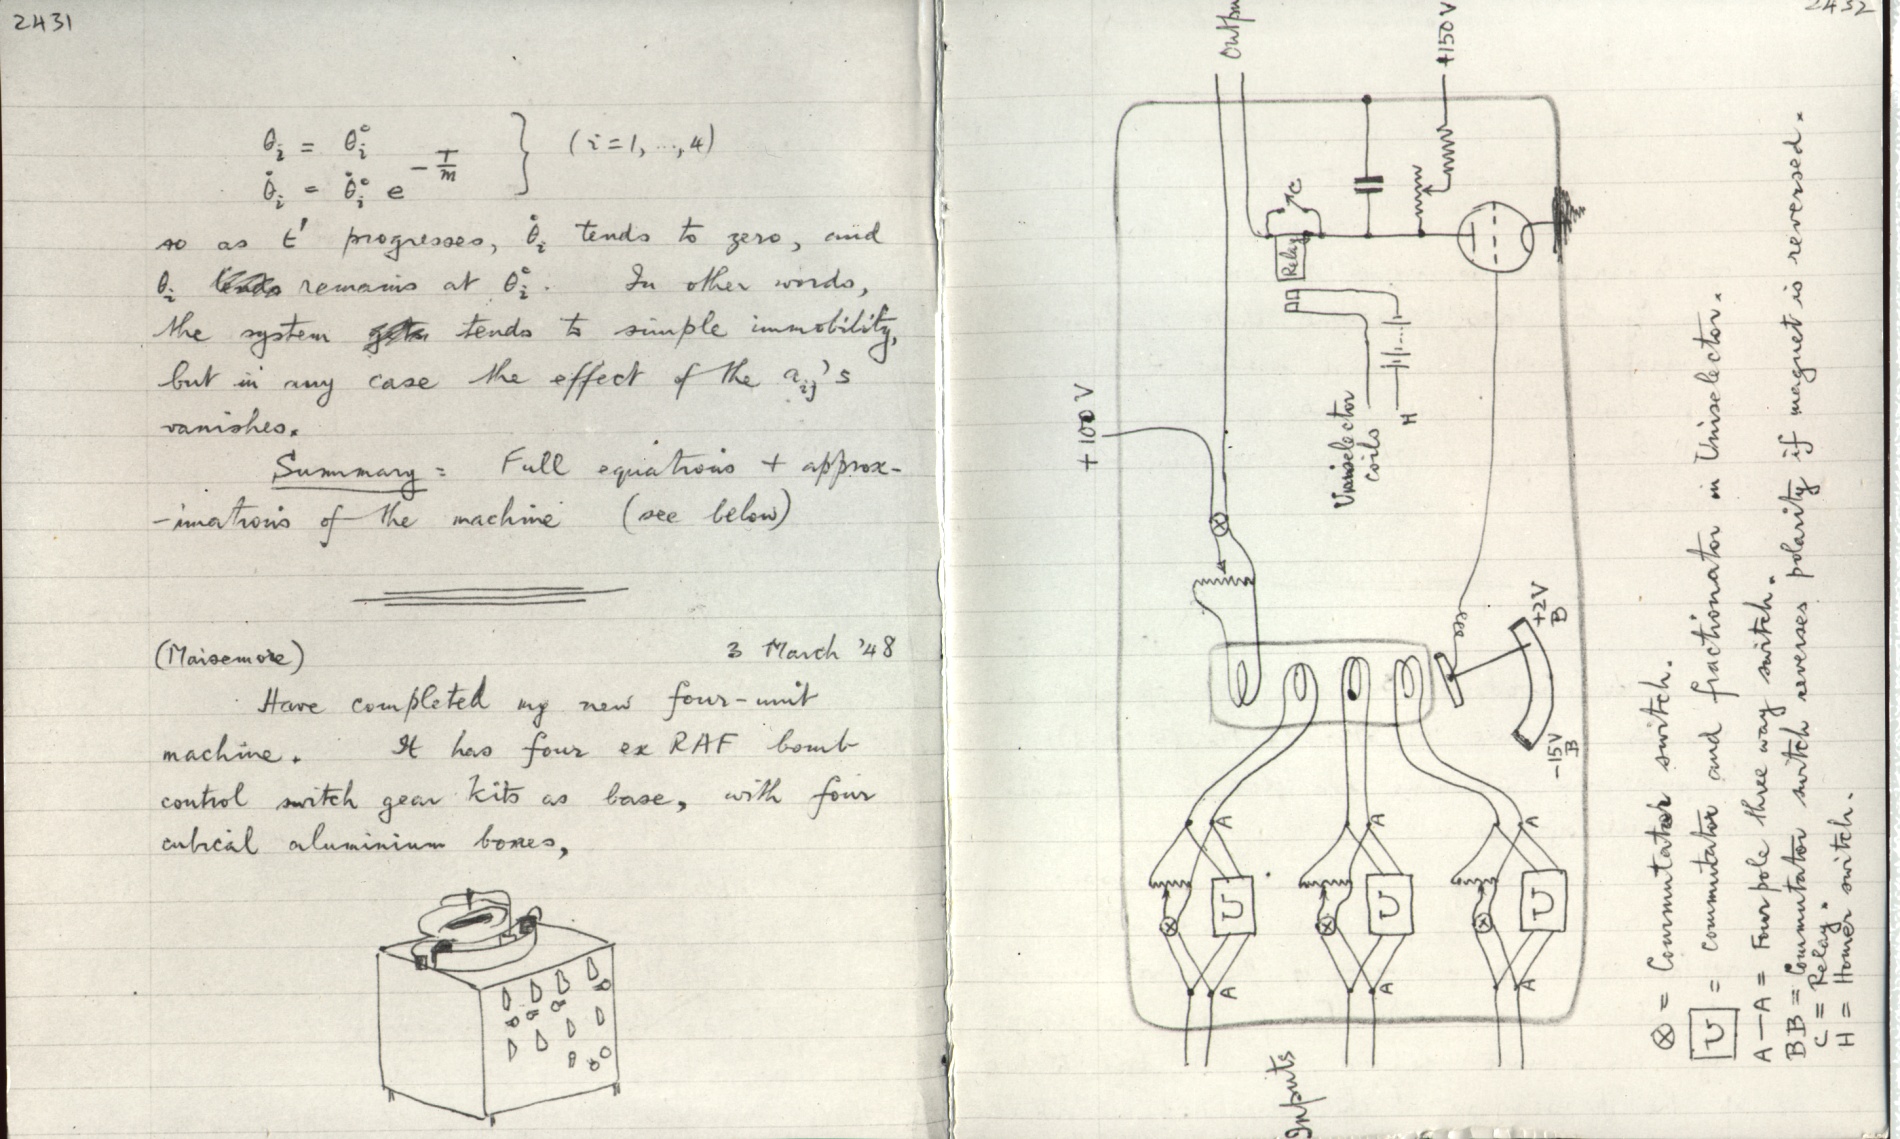 2431
θi = θi° } (i=1, ..., 4)
θ̇i = θ̇i° e^(-T/m)
so as t' progresses, θ̇i tends to zero, and
θi tends remains at θi°. In other words,
the system tends to simple immobility,
but in any case the effect of the aij's
vanishes.
Summary = Full equations + approx-
-imations of the machine (see below)
(Maisemore) 3 March '48
Have completed my new four-unit
machine. It has four ex RAF bomb
control switch gear kits as base, with four
cubical aluminium boxes,
2432
Output
+150 V
C
Relay
+100 V
Uniselector
coils
H
+2V
B
-15V
B
A
A
A
U
U
U
A
A
A
Inputs
⊗ = Commutator switch.
U = Commutator and fractionator in Uniselector.
A—A = Four pole three way switch.
BB = Commutator switch reverses polarity if magnet is reversed.
C = Relay.
H = Homer switch.